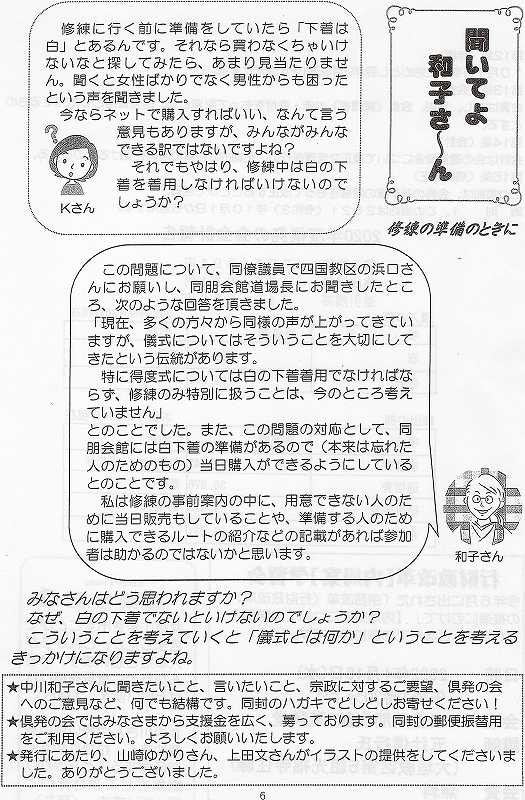 聞いてよ
和子さ〜ん
修練の準備のときに
修練に行く前に準備をしていたら「下着は
白」とあるんです。それなら買わなくちゃいけ
ないなと探してみたら、あまり見当たりませ
ん。聞くと女性ばかりでなく男性からも困った
という声を聞きました。
今ならネットで購入すればいい、なんて言う
意見もありますが、みんながみんな
できる訳ではないですよね?
それでもやはり、修練中は白の下
着を着用しなければいけないので
しょうか?
?
Kさん
この問題について、同僚議員で四国教区の浜口さ
んにお願いし、同朋会館道場長にお聞きしたとこ
ろ、次のような回答を頂きました。
「現在、多くの方々から同様の声が上がってきてい
ますが、儀式についてはそういうことを大切にして
きたという伝統があります。
特に得度式については白の下着着用でなければな
らず、修練のみ特別に扱うことは、今のところ考え
ていません」
とのことでした。また、この問題の対応として、同
朋会館には白下着の準備があるので(本来は忘れた
人のためのもの)当日購入ができるようにしている
とのことです。
私は修練の事前案内の中に、用意できない人のた
めに当日販売もしていることや、準備する人のため
に購入できるルートの紹介などの記載があれば参加
者は助かるのではないかと思います。
和子さん
みなさんはどう思われますか?
なぜ、白の下着でないといけないのでしょうか?
こういうことを考えていくと「儀式とは何か」ということを考える
きっかけになりますよね。
★中川和子さんに聞きたいこと、言いたいこと、宗政に対するご要望、倶発の会
へのご意見など、何でも結構です。同封のハガキでどしどしお寄せください!
★倶発の会ではみなさまから支援金を広く、募っております。同封の郵便振替用
をご利用ください。よろしくお願いいたします。
★発行にあたり、山﨑ゆかりさん、上田文さんがイラストの提供をしてくださいま
した。ありがとうございました。
6